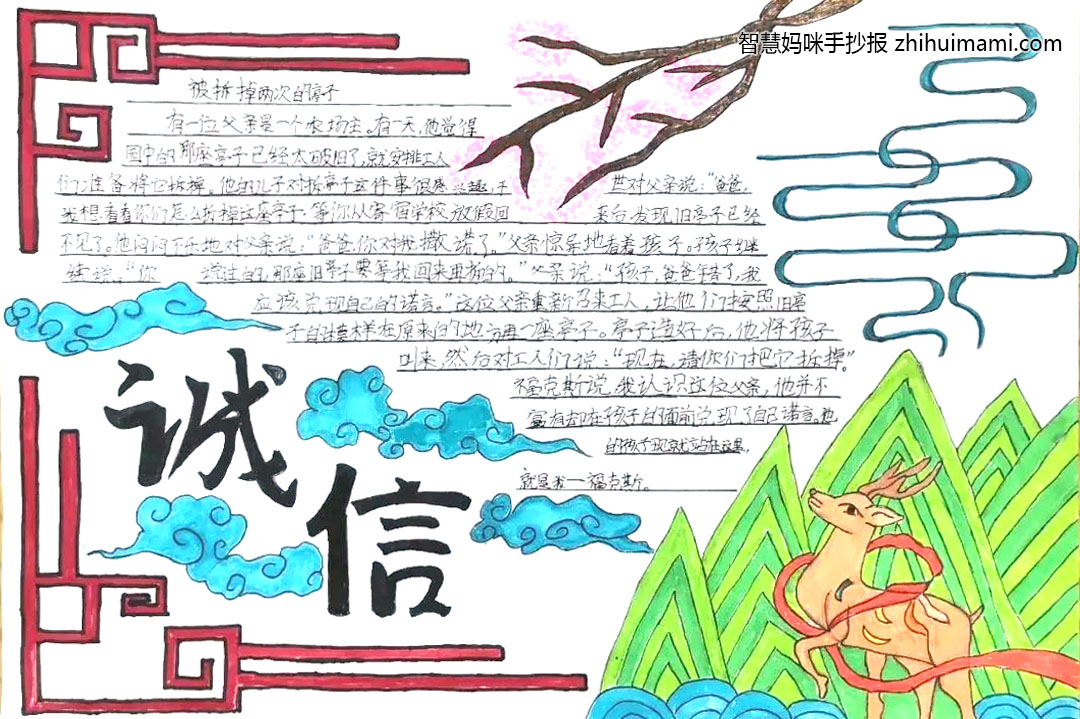 智慧妈咪手抄报 zhihuimami.com
被拆掉两次的亭子
有一位父亲是一个农场主。有一天,他觉得
园中的那座亭子已经太破旧了,就安排工人
们准备将它拆掉。他的儿子对拆亭子这件事很感兴趣,于 世对父亲说:“爸爸,
我想看看你们怎么拆掉这座亭子,等你从寄宿学校放假回 来台发现旧亭子已经
不见了。他闷闷不乐地对父亲说:“爸爸,你对我撒谎了。”父亲惊异地看着孩子。孩子继
续说。“你 说过的,那座旧亭子要等我回来再拆的。”父亲说:“孩子,爸爸错了,我
应该兑现自己的诺言。”这位父亲重新召来工人,让他们按照旧亭
子的模样在原来的地方再一座亭子。亭子造好后,他将孩子
叫来,然后对工人们说:“现在,请你们把它拆掉。”
福克斯说,我认识这位父亲,他并不
富有却在孩子的面前兑现了自己诺言。他
的孩子现就站在这里,
就是我一福克斯。
诚
信